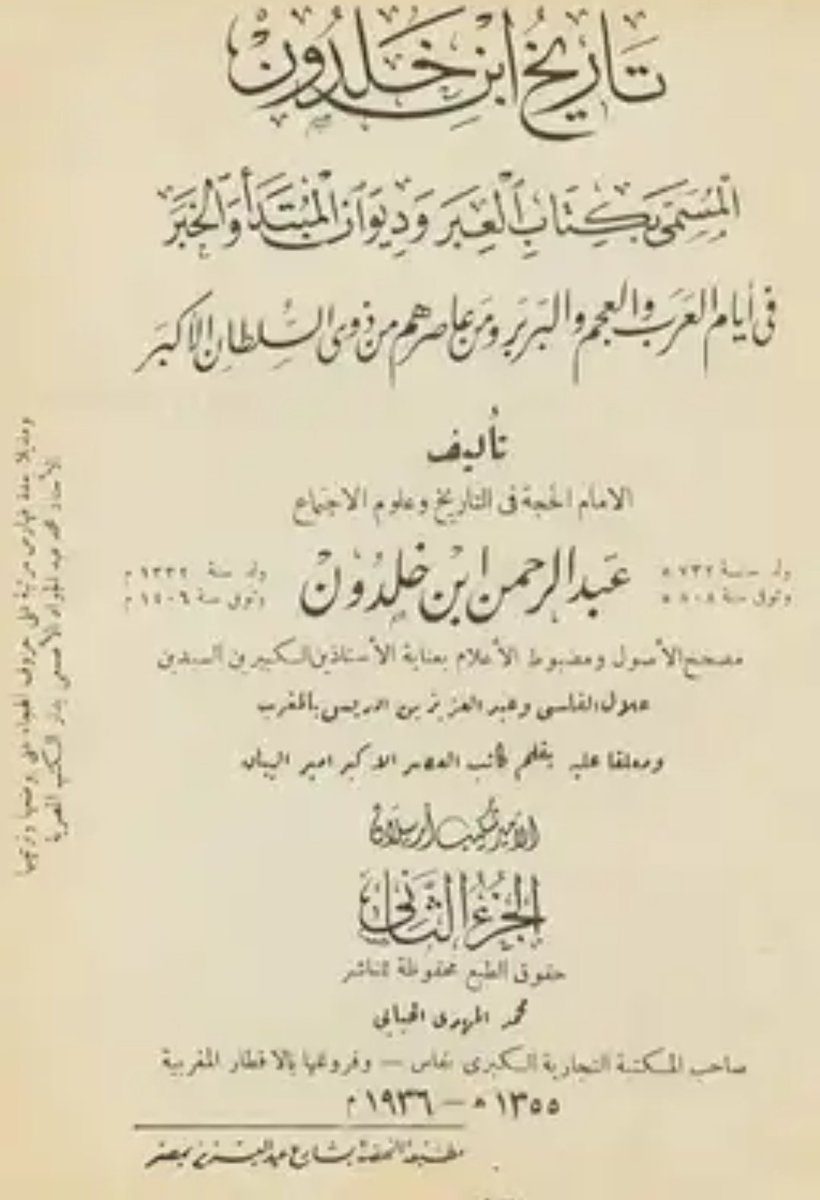 تاريخ ابن خلدون
المسمى بكتاب العبر وديوان المبتدأ والخبر
في أيام العرب والعجم والبربر ومن عاصرهم من ذوى السلطان الاكبر
تأليف
الامام الحجة فى التاريخ وعلوم الاجتماع
ولد سنة ٧٣٢ ه
وتوفى سنة ٨٠٨ ه
عبد الرحمن ابن خلدون
ولد سنة ١٣٣٢ م
وتوفى سنة ١٤٠٦ م
مصحح الأصول ومضبوط الأعلام بعناية الأستاذين الكبيرين السيدين
علال الفاسى وعبد العزيز بن ادريس بالمغرب
ومعلقا عليه بقلم كاتب العصر الاكبر امير البيان
الأمير شكيب أرسلان
الجزء الثانى
حقوق الطبع محفوظة للناشر
محمد المهدى الحبابى
صاحب المكتبة التجارية الكبرى بفاس — وفروعها بالاقطار المغربية
١٣٥٥ ه — ١٩٣٦ م
مطبعة النهضة بشارع عبد العزيز بمصر
ومذيلا بعدة فهارس مرتبة على حروف الهجاء
الأستاذ محمد عبد الجواد الأصمعى بدار الكتب المصرية